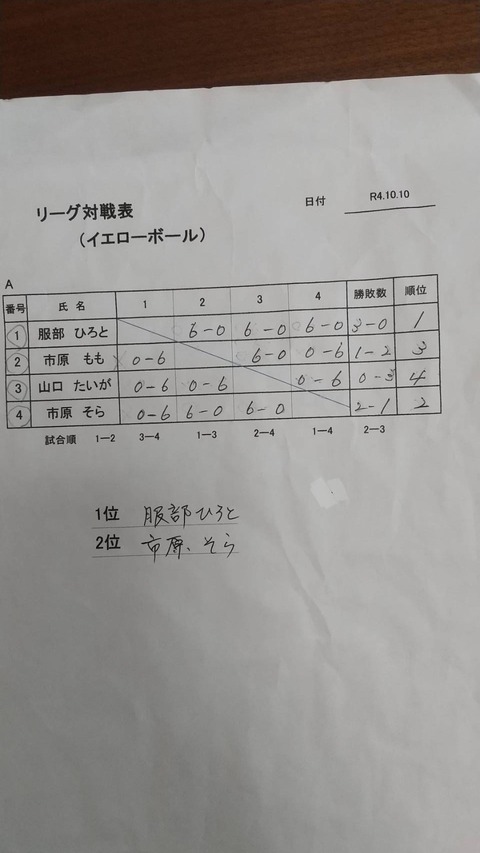 日付 R4.10.10
リーグ対戦表
（イエローボール）
A
番号 氏名 1 2 3 4 勝敗数 順位
1 服部 ひろと 6-0 6-0 6-0 3-0 1
2 市原 もも 0-6 6-0 0-6 1-2 3
3 山口 たいが 0-6 0-6 0-6 0-3 4
4 市原 そら 0-6 6-0 6-0 2-1 2
試合順 1―2 3―4 1―3 2―4 1―4 2―3
1位 服部ひろと
2位 市原、そら